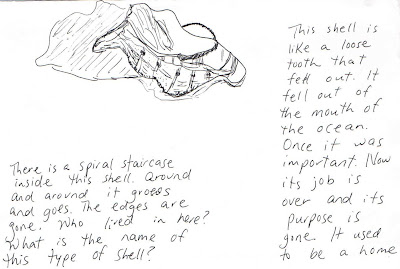 There is a spiral staircase
inside this shell. Around
and around it groess
and goes. The edges are
gone. Who lived in here?
What is the name of
this type of shell?
This shell is
like a loose
tooth that
fell out. It
fell out of
the mouth of
the ocean.
Once it was
important. Now
its job is
over and its
purpose is
gone. It used
to be a home